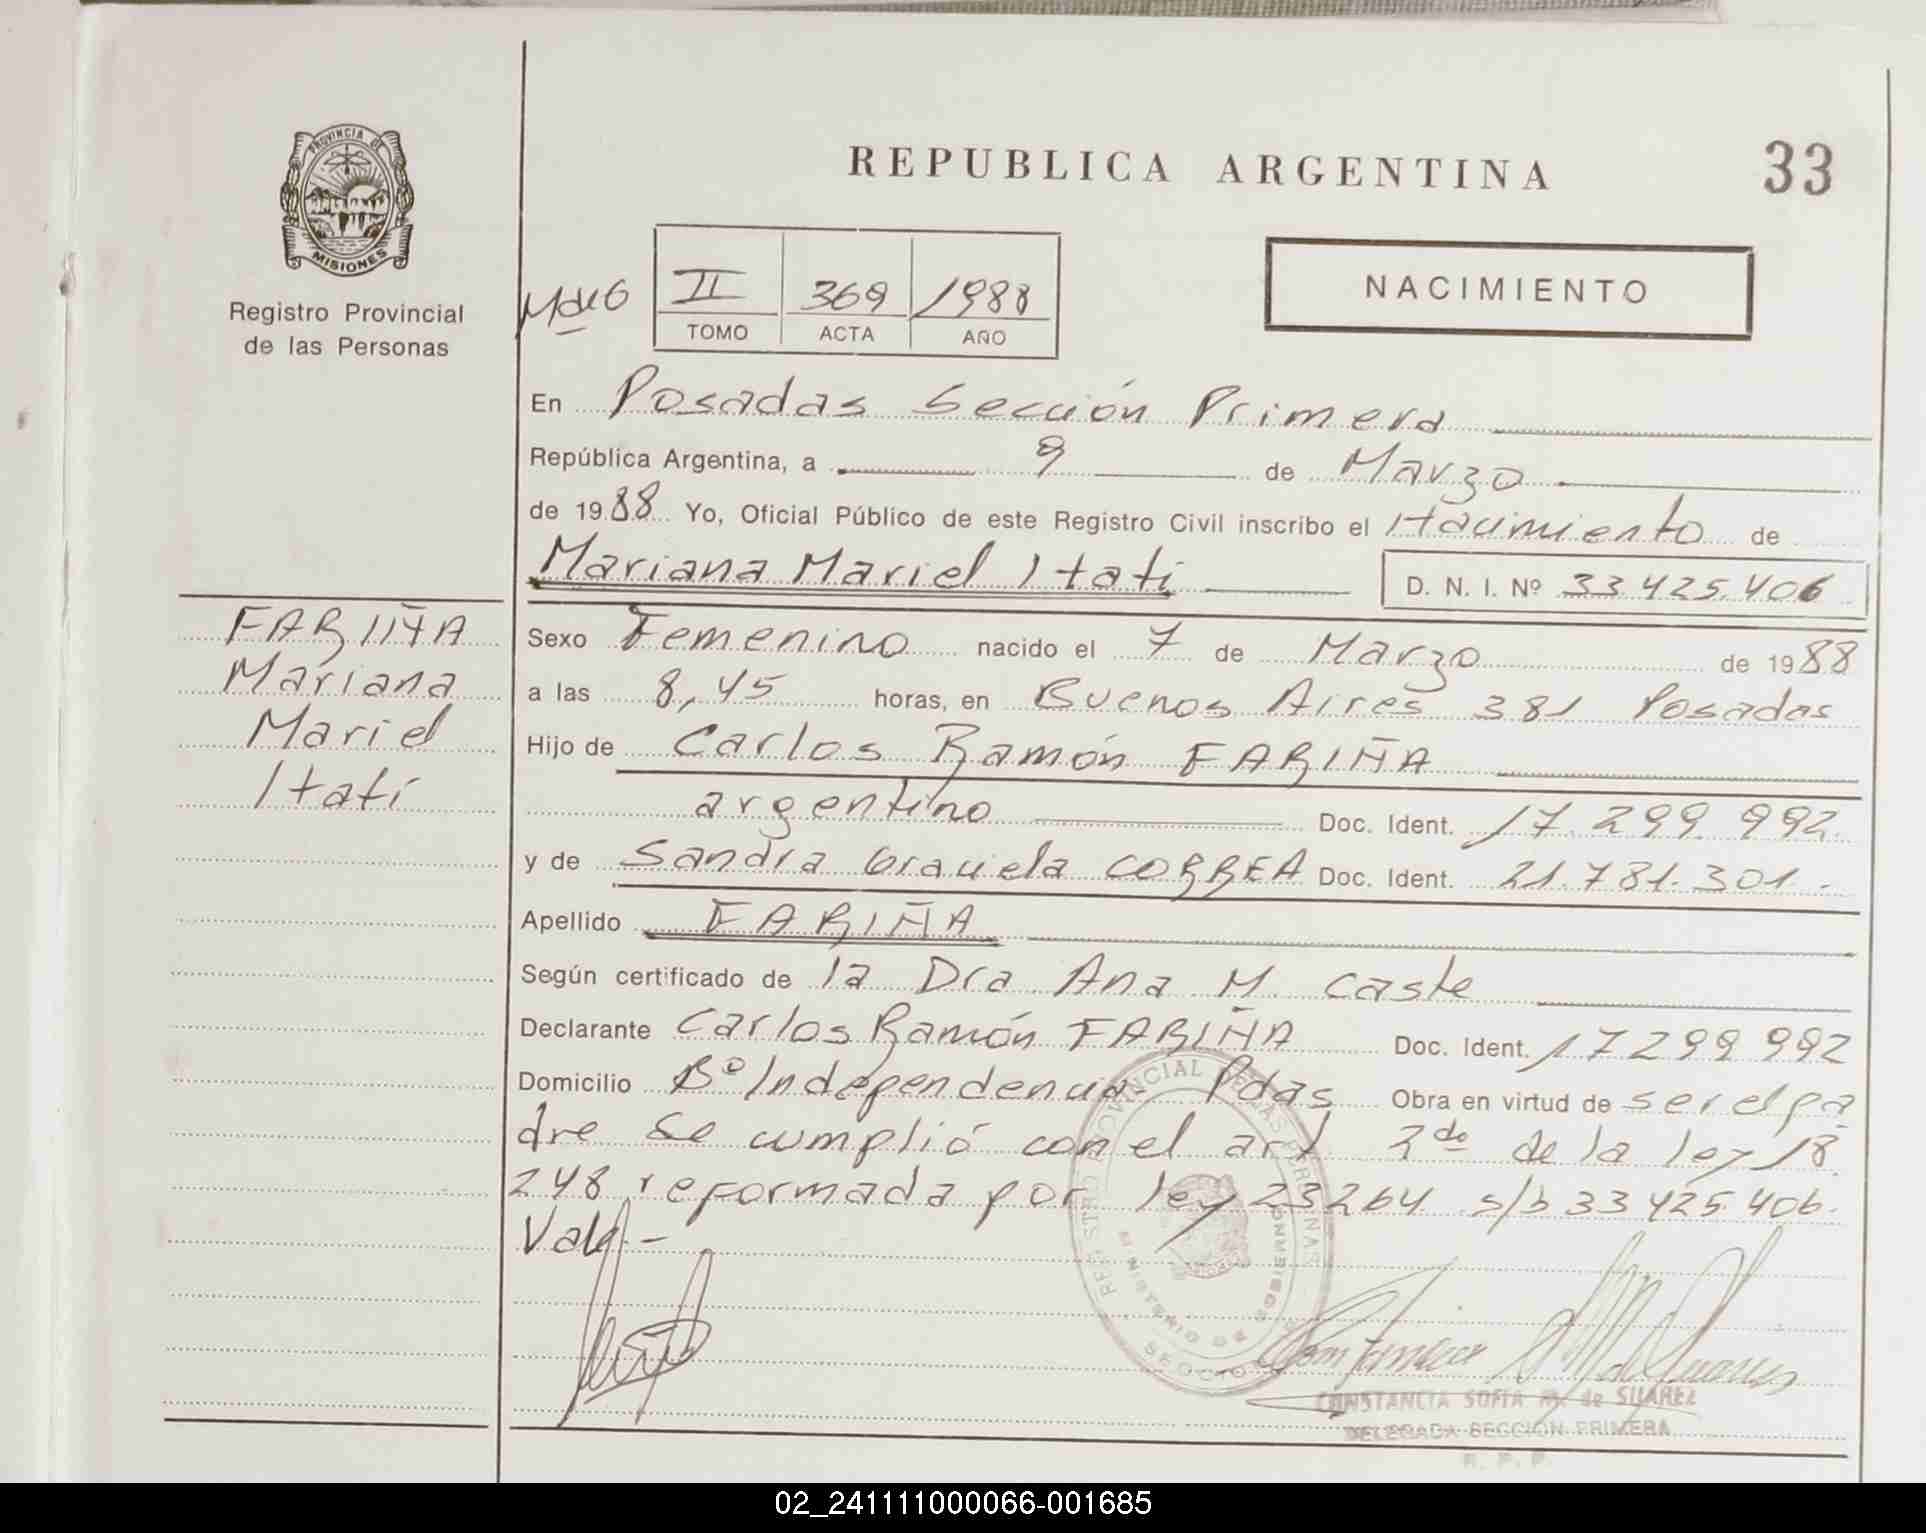 REPUBLICA ARGENTINA
33
PROVINCIA DE
MISIONES
Registro Provincial
de las Personas
II 369 1988
TOMO ACTA AÑO
NACIMIENTO
En Posadas Sección Primera
República Argentina, a 9 de Marzo
de 1988 Yo, Oficial Público de este Registro Civil inscribo el Nacimiento de
Mariana Mariel Itatí D. N. I. Nº 33 425.406
FARIÑA
Mariana
Mariel
Itatí
Sexo Femenino nacido el 7 de Marzo de 1988
a las 8,45 horas, en Buenos Aires 381 Posadas
Hijo de Carlos Ramón FARIÑA
argentino Doc. Ident. 17.299.992.
y de Sandra Graciela CORREA Doc. Ident. 21.781.301.-
Apellido FARIÑA
Según certificado de la Dra Ana M. Caste
Declarante Carlos Ramón FARIÑA Doc. Ident. 17299992
Domicilio Bº Independencia Pdas Obra en virtud de ser el pa
dre se cumplió con el art 2do de la ley 18.
248 reformada por ley 23264 s/b 33 425.406.
Vale-
REGISTRO PROVINCIAL DE LAS PERSONAS
MINISTERIO DE
SECCION
CONSTANCIA SOFIA M. de SUAREZ
DELEGADA SECCION PRIMERA
R. P. P.
02_241111000066-001685